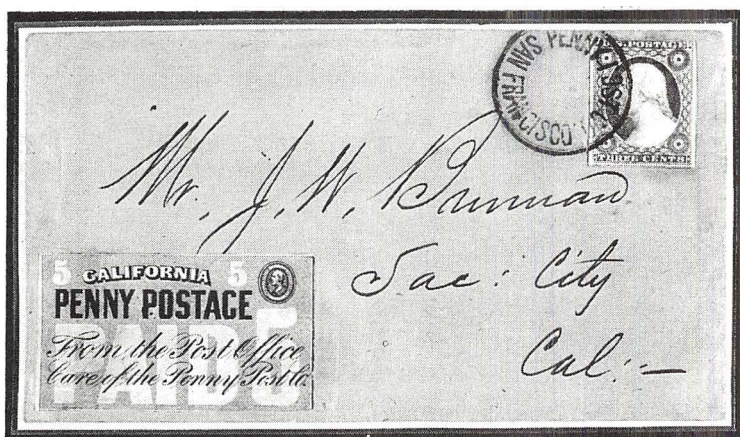 PENNY POST CO.
SAN FRANCISCO
U.S. POSTAGE
THREE CENTS
Mr. J. W. Brennan
Sac: City
Cal:-
5 CALIFORNIA 5
PENNY POSTAGE
PAID 5
From, the Post Office
Care of the Penny Post Co.